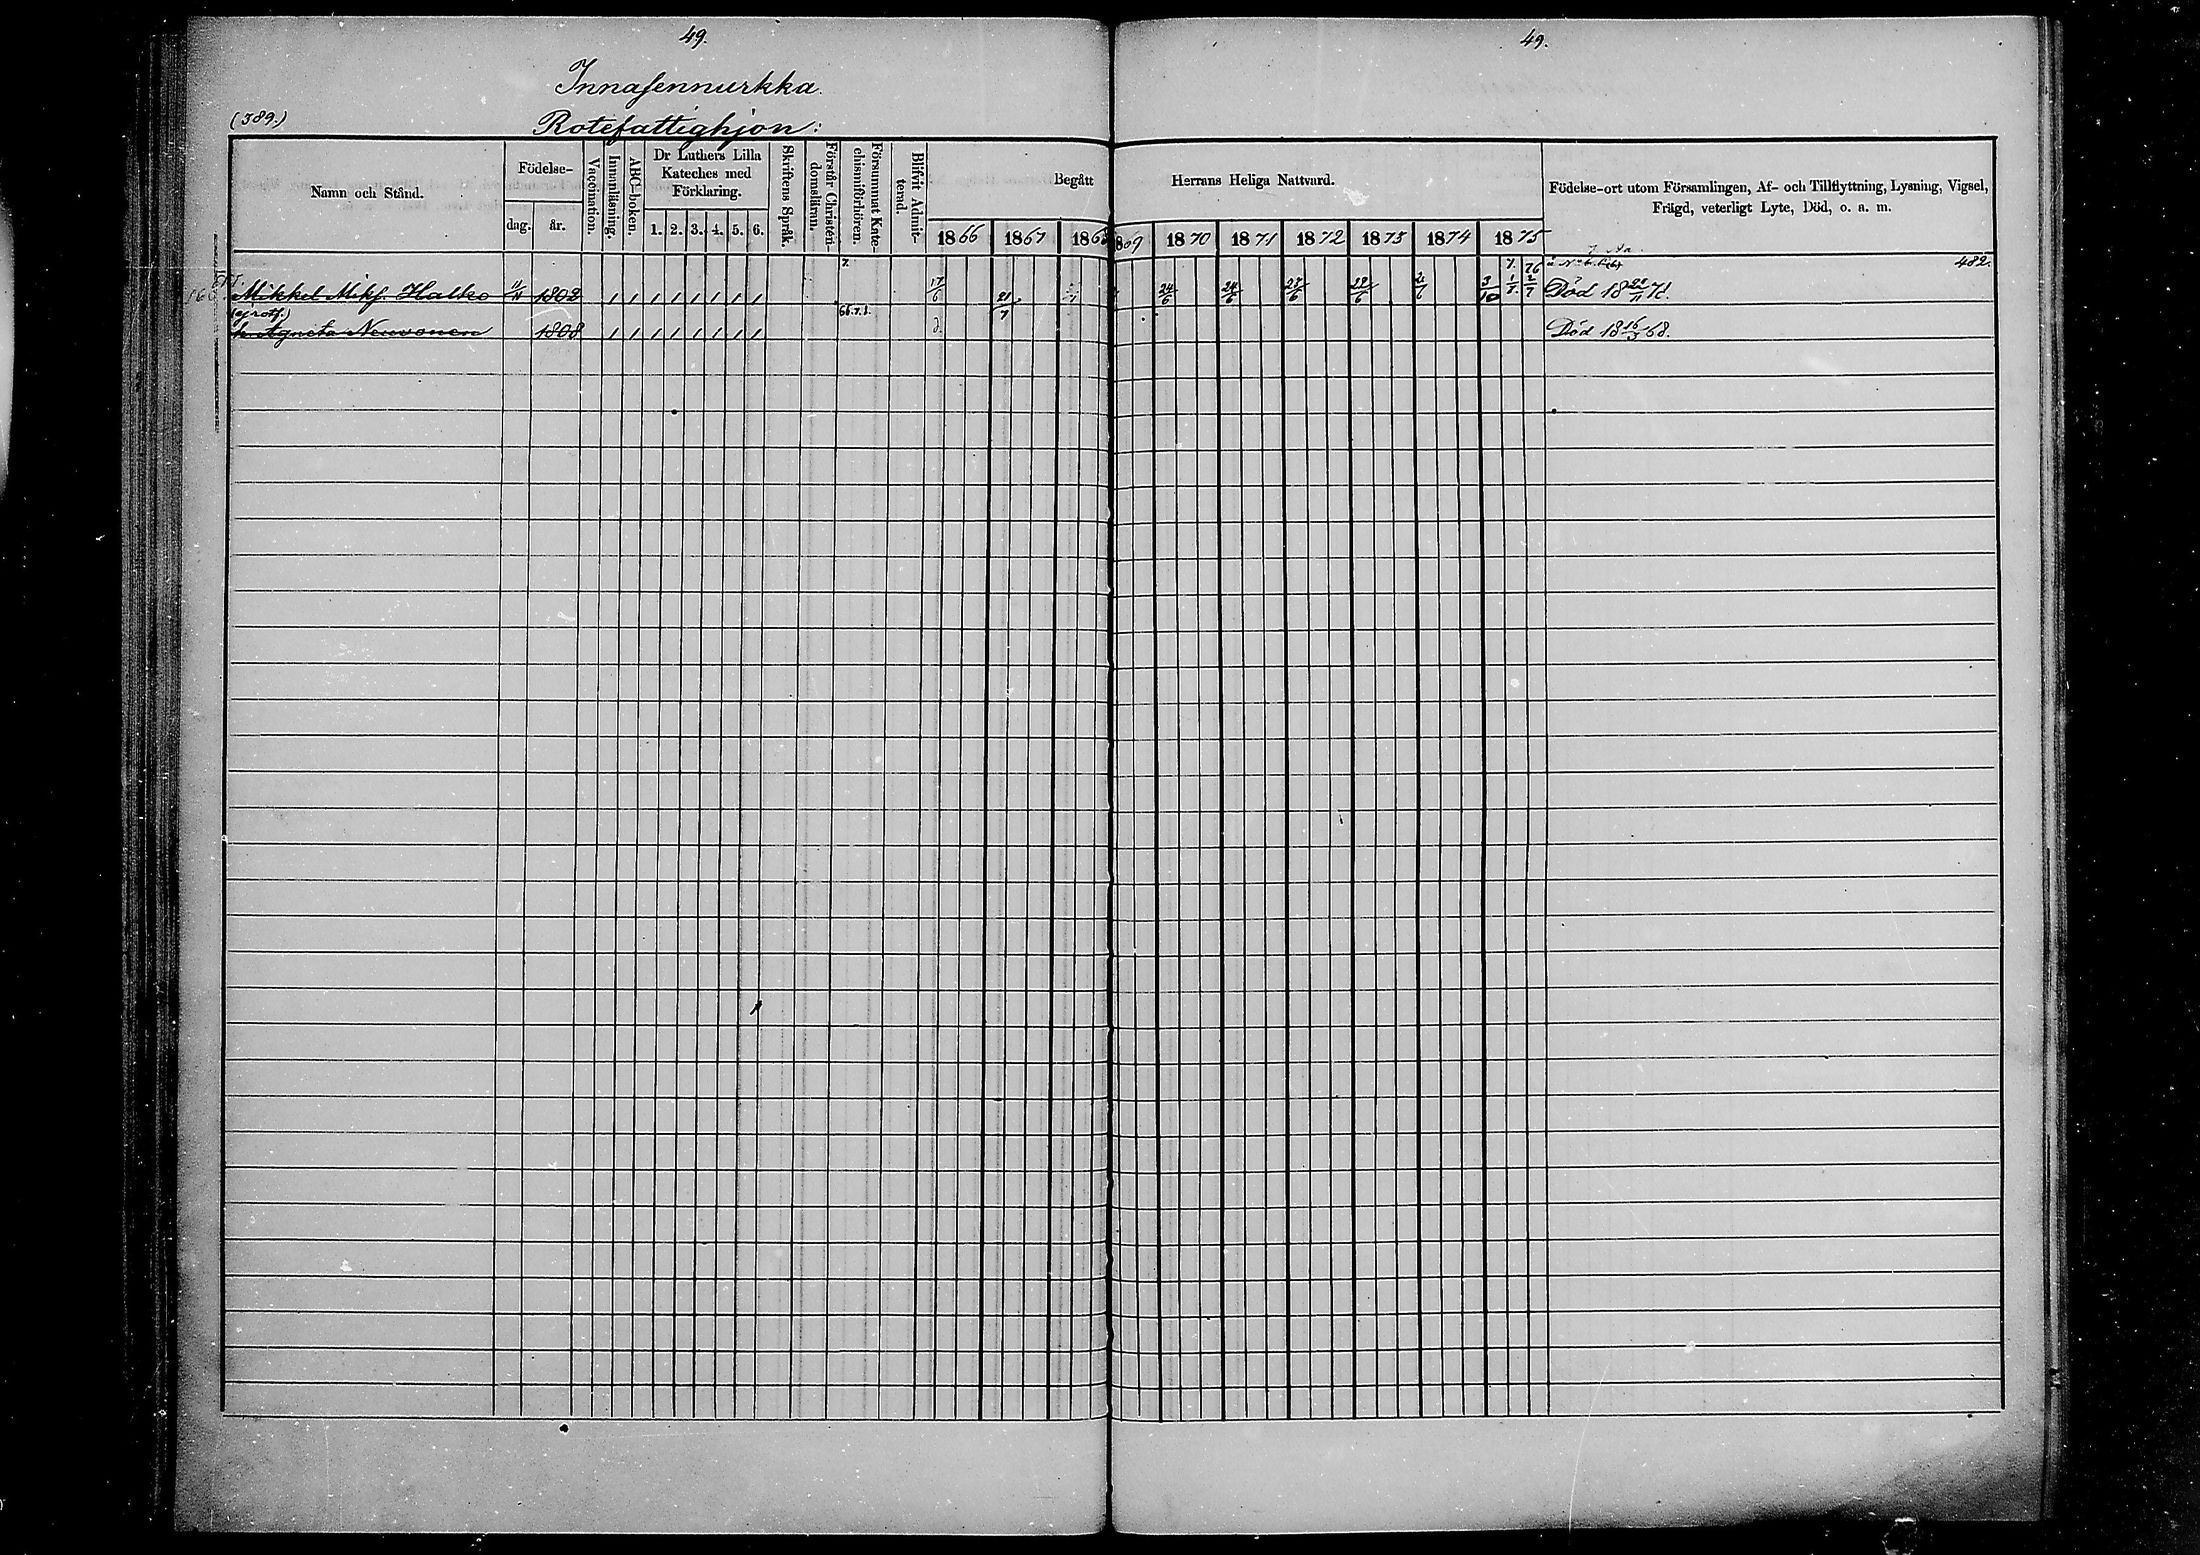 49.
49.
Innasennurkka.
(389.)
Rotefattighjon:
Namn och Stånd.
Födelse-
dag.
år.
Vaccination.
Innanläsning.
ABC-boken.
Dr Luthers Lilla
Kateches med
Förklaring.
1. 2. 3. 4. 5. 6.
Skriftens Språk.
Förstår Christen-
domsläran.
Försummat Kate-
chismiförhören.
Blifvit Admit-
terad.
Begått Herrans Heliga Nattvard.
1866 1867 1868 1869 1870 1871 1872 1873 1874 1875
Födelse-ort utom Församlingen, Af- och Tillflyttning, Lysning, Vigsel,
Frägd, veterligt Lyte, Död, o. a. m.
7. 7. 76 482.
Mikkel Miks. Halko 1802 17/6 21/7 24/6 24/6 22/6 2/6 3/10 1/7 2/7 Död 18
(ej rotf.) 66.7.8.
h. Agneta Neuvonen 1808 Död 18 16/3 68.